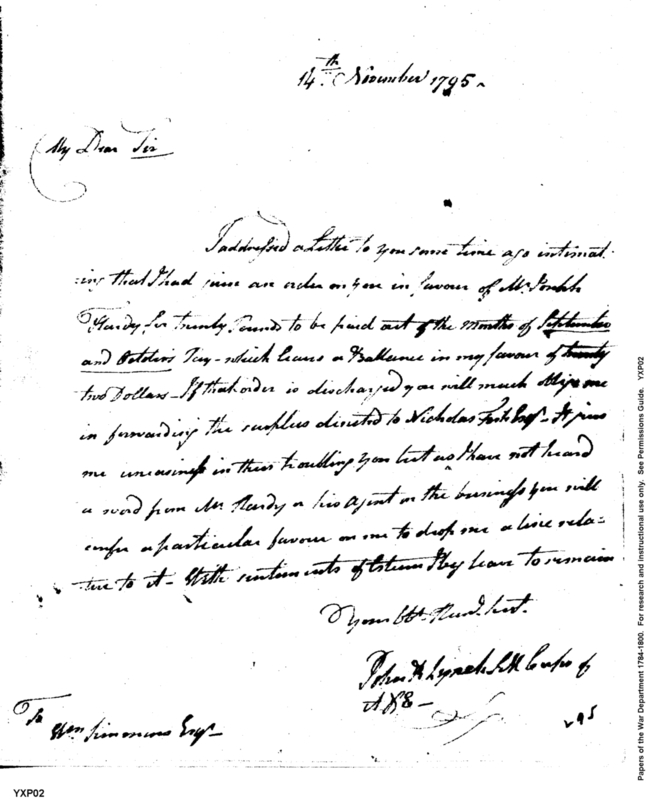 14th November 1795
My Dear Sir
I addressed a Letter to you some time ago intimat
ing that I had given an order on you in favour of Mr Joseph
Hardy for twenty Pounds to be paid out of the months of September
and October's Pay - which leaves a Ballance in my favour of twenty
two Dollars - If that order is discharged you will much oblige me
in forwarding the surplus directed to Nicholas Esqr - It gives
me uneasiness in thus troubling you but as I have not heard
a word from Mr Hardy or his Agent on the business you will
confer a particular favour on me to drop me a line rela=
tive to it - With sentiments of Esteem I beg leave to remain
Your Obt. Hum. Sert.
John Lynch Corps of
A & E -
To
Wm Simmons Esqr -
95
Papers of the War Department 1784-1800. For research and instructional use only. See Permissions Guide. YXP02
YXP02